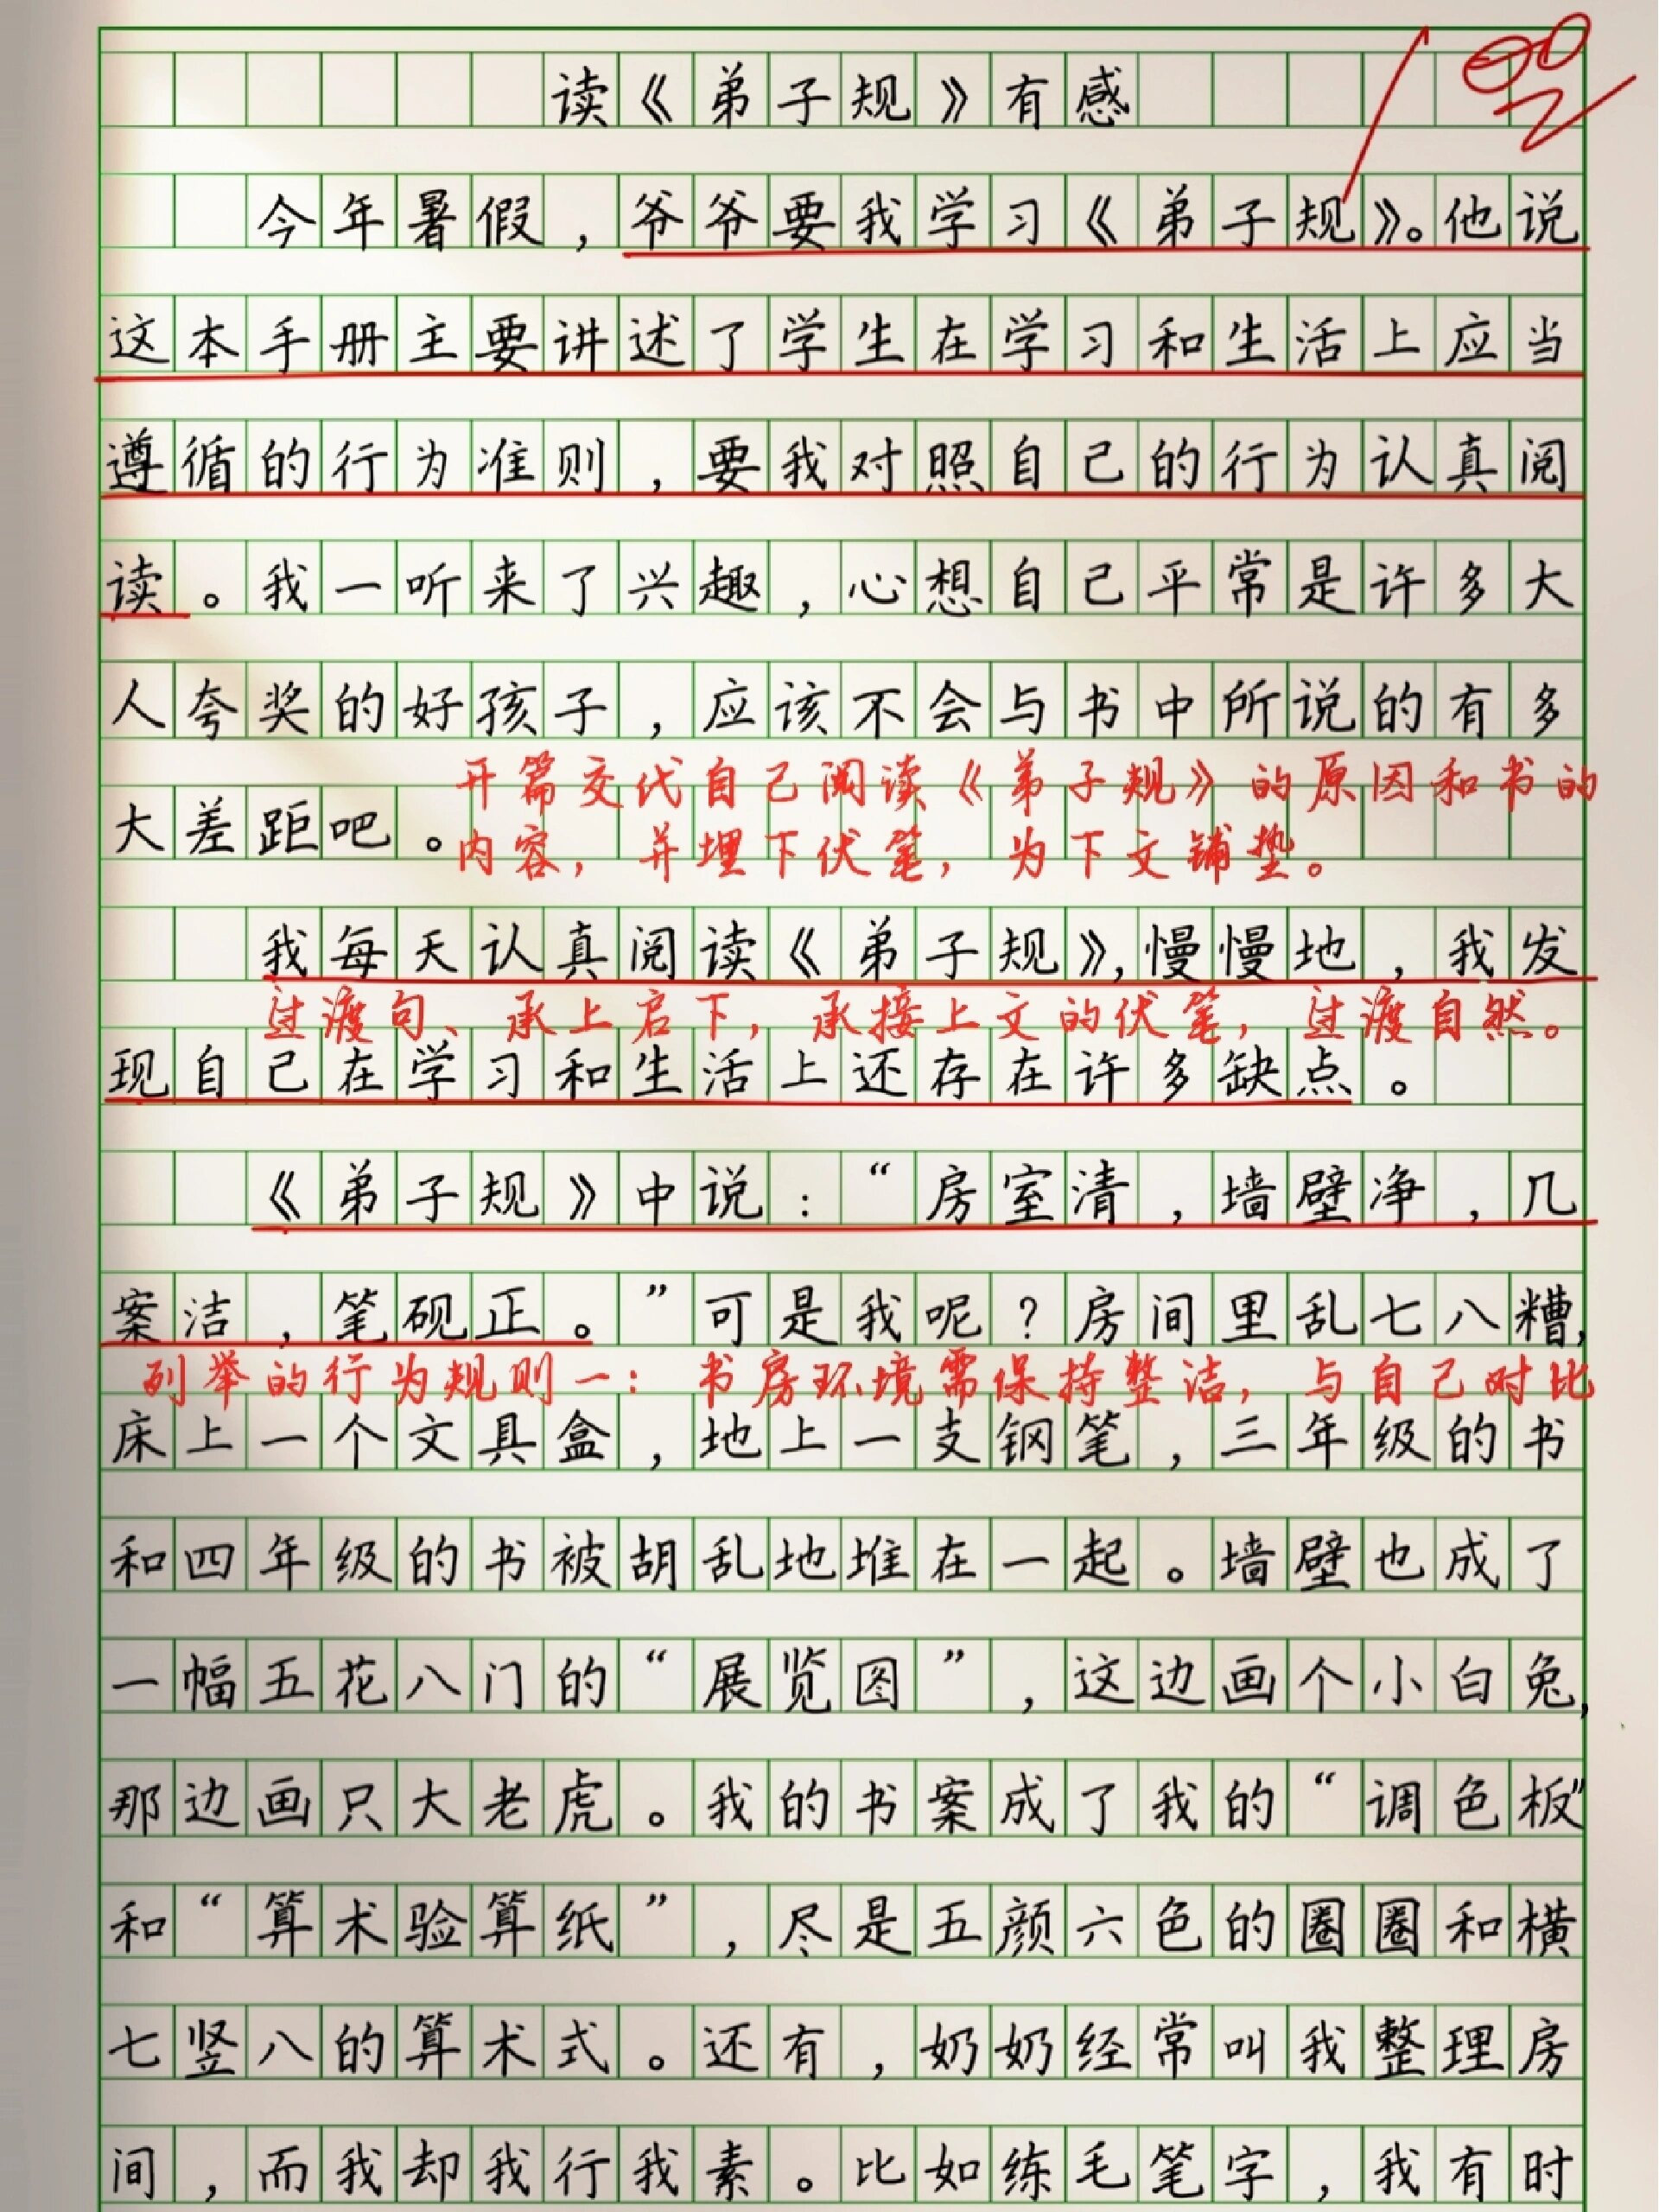 读《弟子规》有感
今年暑假，爷爷要我学习《弟子规》。他说
这本手册主要讲述了学生在学习和生活上应当
遵循的行为准则，要我对照自己的行为认真阅
读。我一听来了兴趣，心想自己平常是许多大
人夸奖的好孩子，应该不会与书中所说的有多
大差距吧。
开篇交代自己阅读《弟子规》的原因和书的
内容，并埋下伏笔，为下文铺垫。
我每天认真阅读《弟子规》，慢慢地，我发
过渡句、承上启下，承接上文的伏笔，过渡自然。
现自己在学习和生活上还存在许多缺点。
《弟子规》中说：“房室清，墙壁净，几
案洁，笔砚正。”可是我呢？房间里乱七八糟，
列举的行为规则一：书房环境需保持整洁，与自己对比
床上一个文具盒，地上一支钢笔，三年级的书
和四年级的书被胡乱地堆在一起。墙壁也成了
一幅五花八门的“展览图”，这边画个小白兔，
那边画只大老虎。我的书案成了我的“调色板”
和“算术验算纸”，尽是五颜六色的圈圈和横
七竖八的算术式。还有，奶奶经常叫我整理房
间，而我却我行我素。比如练毛笔字，我有时